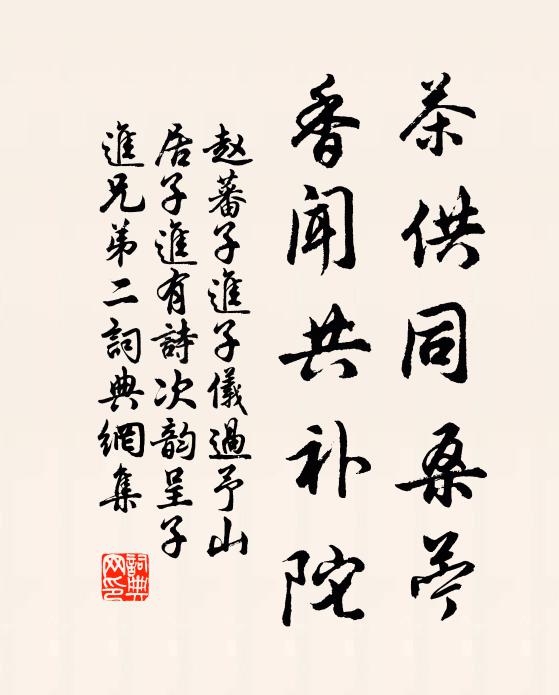 茶供同桑苎
香闻共补陀
赵蕃子進子儀過予山
居子進有詩次韵呈子
進兄弟二詞典網集
詞典网印